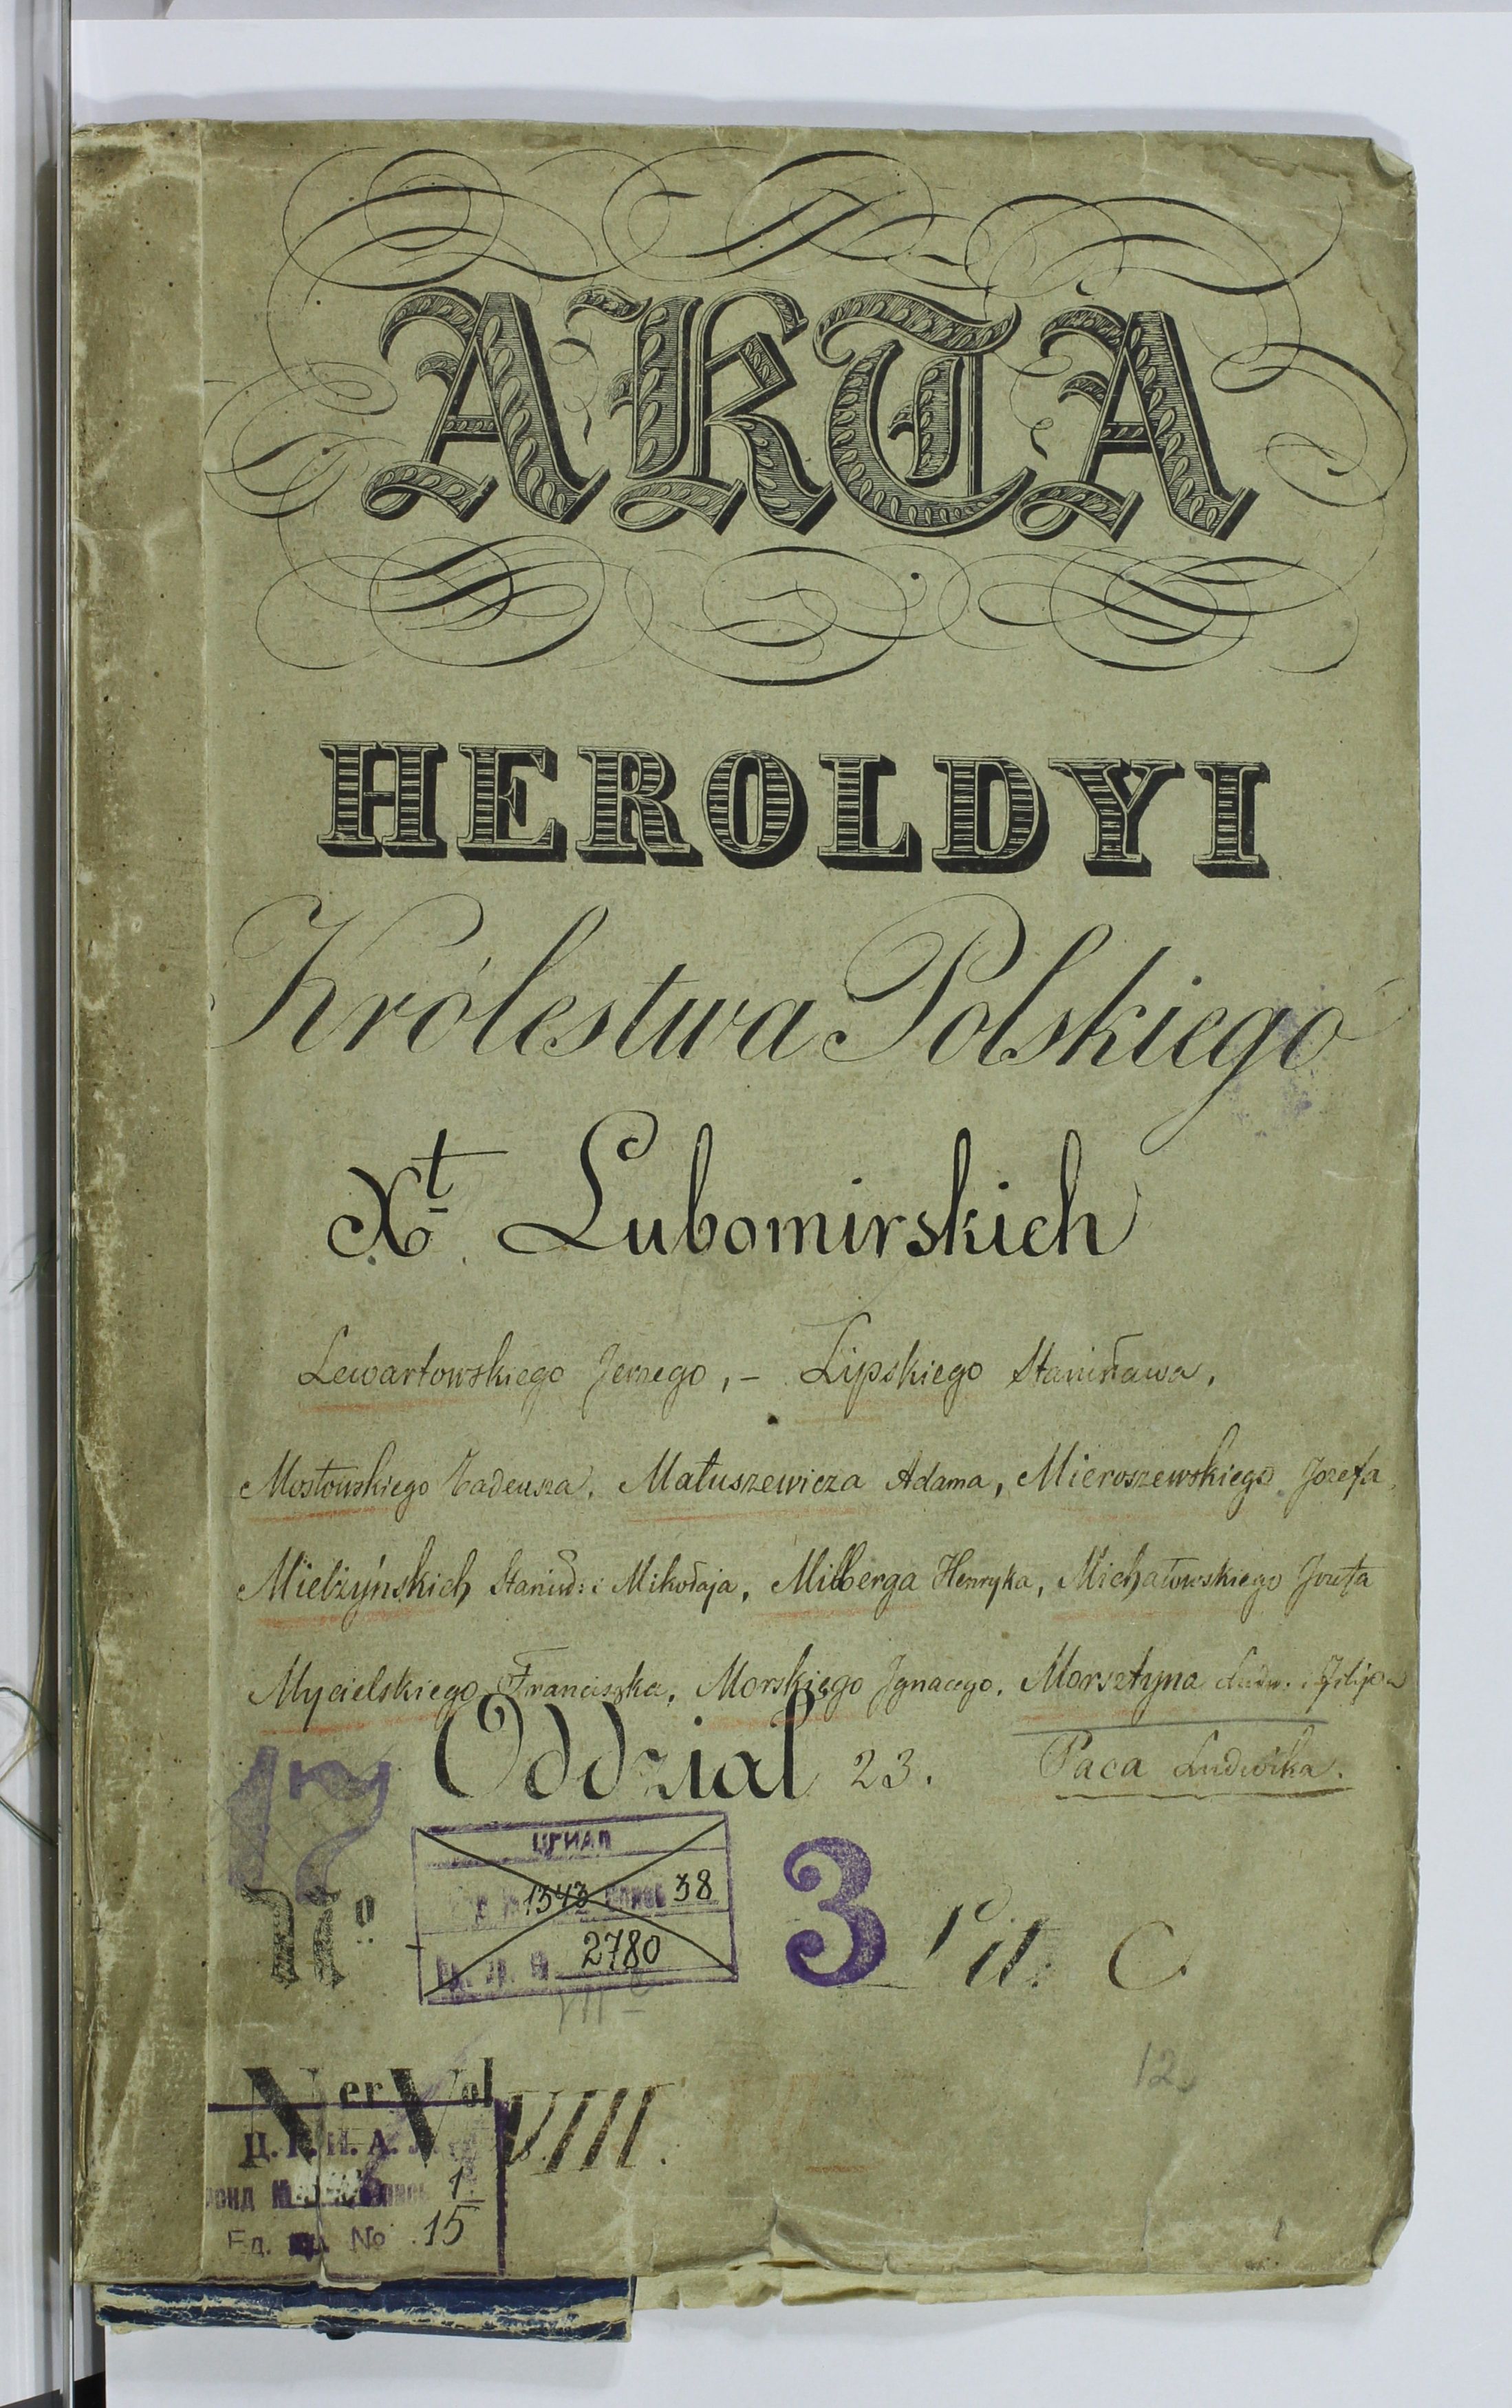 AKTA
HEROLDYI
Królestwa Polskiego
Xt Lubomirskich
Lewartowskiego Jerzego, – Lipskiego Stanisława,
Mostowskiego Tadeusza, Matuszewicza Adama, Mieroszewskiego Jozefa,
Mielżyńskich Stanisł: i Mikołaja, Milberga Henryka, Michałowskiego Jozefa
Mycielskiego Franciszka, Morskiego Ignacego, Morsztyna Ludw. i Filipa
Oddział 23. Paca Ludwika.
17
ЦГИАЛ
1343 опись 38
2780
No 3 Lit. C.
12
Ner Vol VIII.
Ц. Г. И. А. Л.
фонд опись 1
Ед. хр. No 15